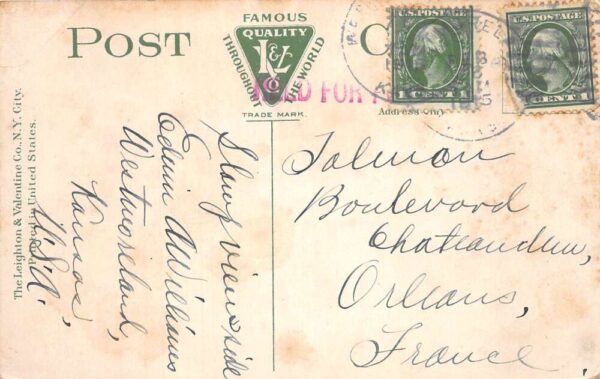 POST
FAMOUS
QUALITY
THROUGHOUT THE WORLD
L & V
Co
TRADE MARK.
C
FOR
Address Only
U.S. POSTAGE
1 CENT 1
U.S. POSTAGE
CENT
The Leighton & Valentine Co., N.Y. City.
Printed in United States.
Stamp view side
Edwin A Williams
Westmoreland,
Kansas,
U.S.A.
Salmon
Boulevard
Chateaudun,
Orleans,
France